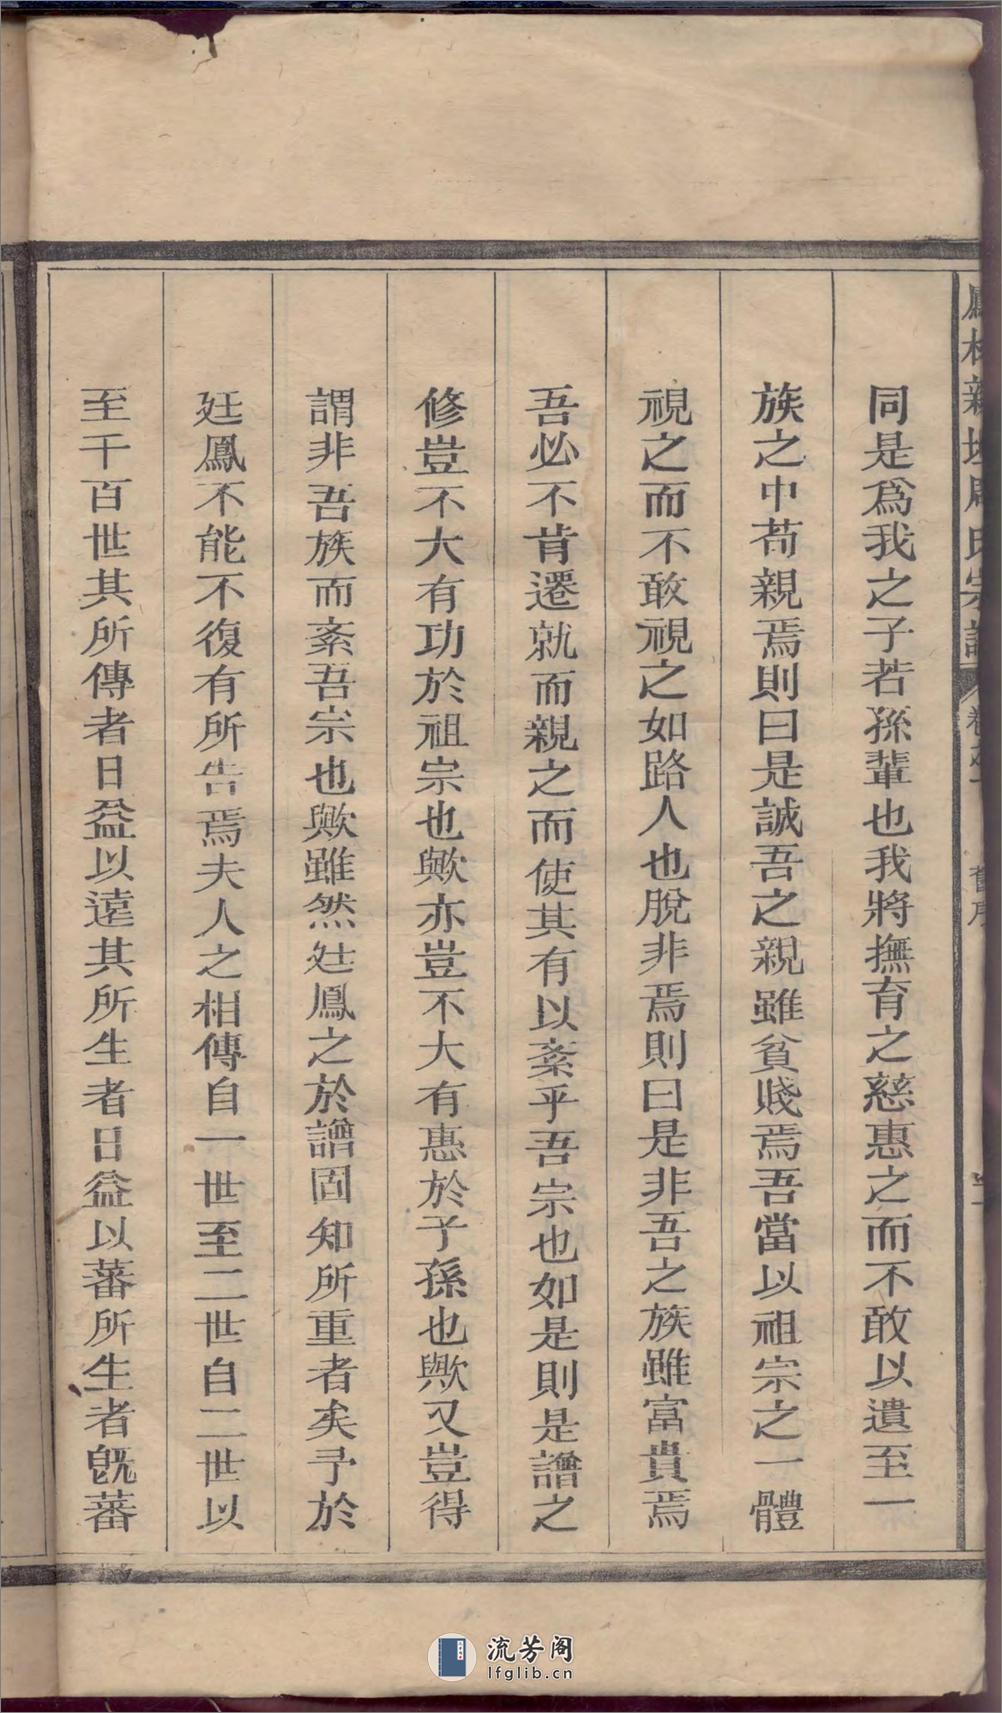 同是爲我之子若孫輩也我將撫育之慈惠之而不敢以遺至一
族之中苟親焉則曰是誠吾之親雖貧賤焉吾當以祖宗之一體
視之而不敢視之如路人也脫非焉則曰是非吾之族雖富貴焉
吾必不肯遷就而親之而使其有以紊乎吾宗也如是則是譜之
修豈不大有功於祖宗也歟亦豈不大有惠於子孫也歟又豈得
謂非吾族而紊吾宗也歟雖然廷鳳之於譜固知所重者矣予於
廷鳳不能不復有所告焉夫人之相傳自一世至二世自二世以
至千百世其所傳者日益以遠其所生者日益以蕃所生者旣蕃
氏宗譜
舊序
流芳阁
lfglib.cn